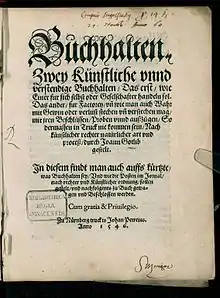 Buchhalten,
Zwey Künstliche vnnd
verstendige Buchhalten / Das erst / wie
Einer für sich selbs oder Geselschafter handlen sol.
Das ander / für Factorey / vñ wie man auch Wahr
mit Gewyn oder verlust stechen vñ versterchen mag
mit jren Beschliessen / Proben vnnd auszügen. So
dermassen in Truck nie kommen sein / Nach
künstlicher rechter natürlicher art vnd
proceß / durch Joann Gotlieb
gestelt.
In diesem findt man auch auffs kürtze /
was Buchhalten sey / Vnd wie die Posten im Jornal /
nach rechter vnd Künstlicher ordnung sollen
gestelt / vnd nachfolgents zu Buch getra-
gen vnd Beschlossen werden.
Cum gratia & Priuilegio.
Zu Nürnberg truckts Johan Petreius.
Anno 1546.